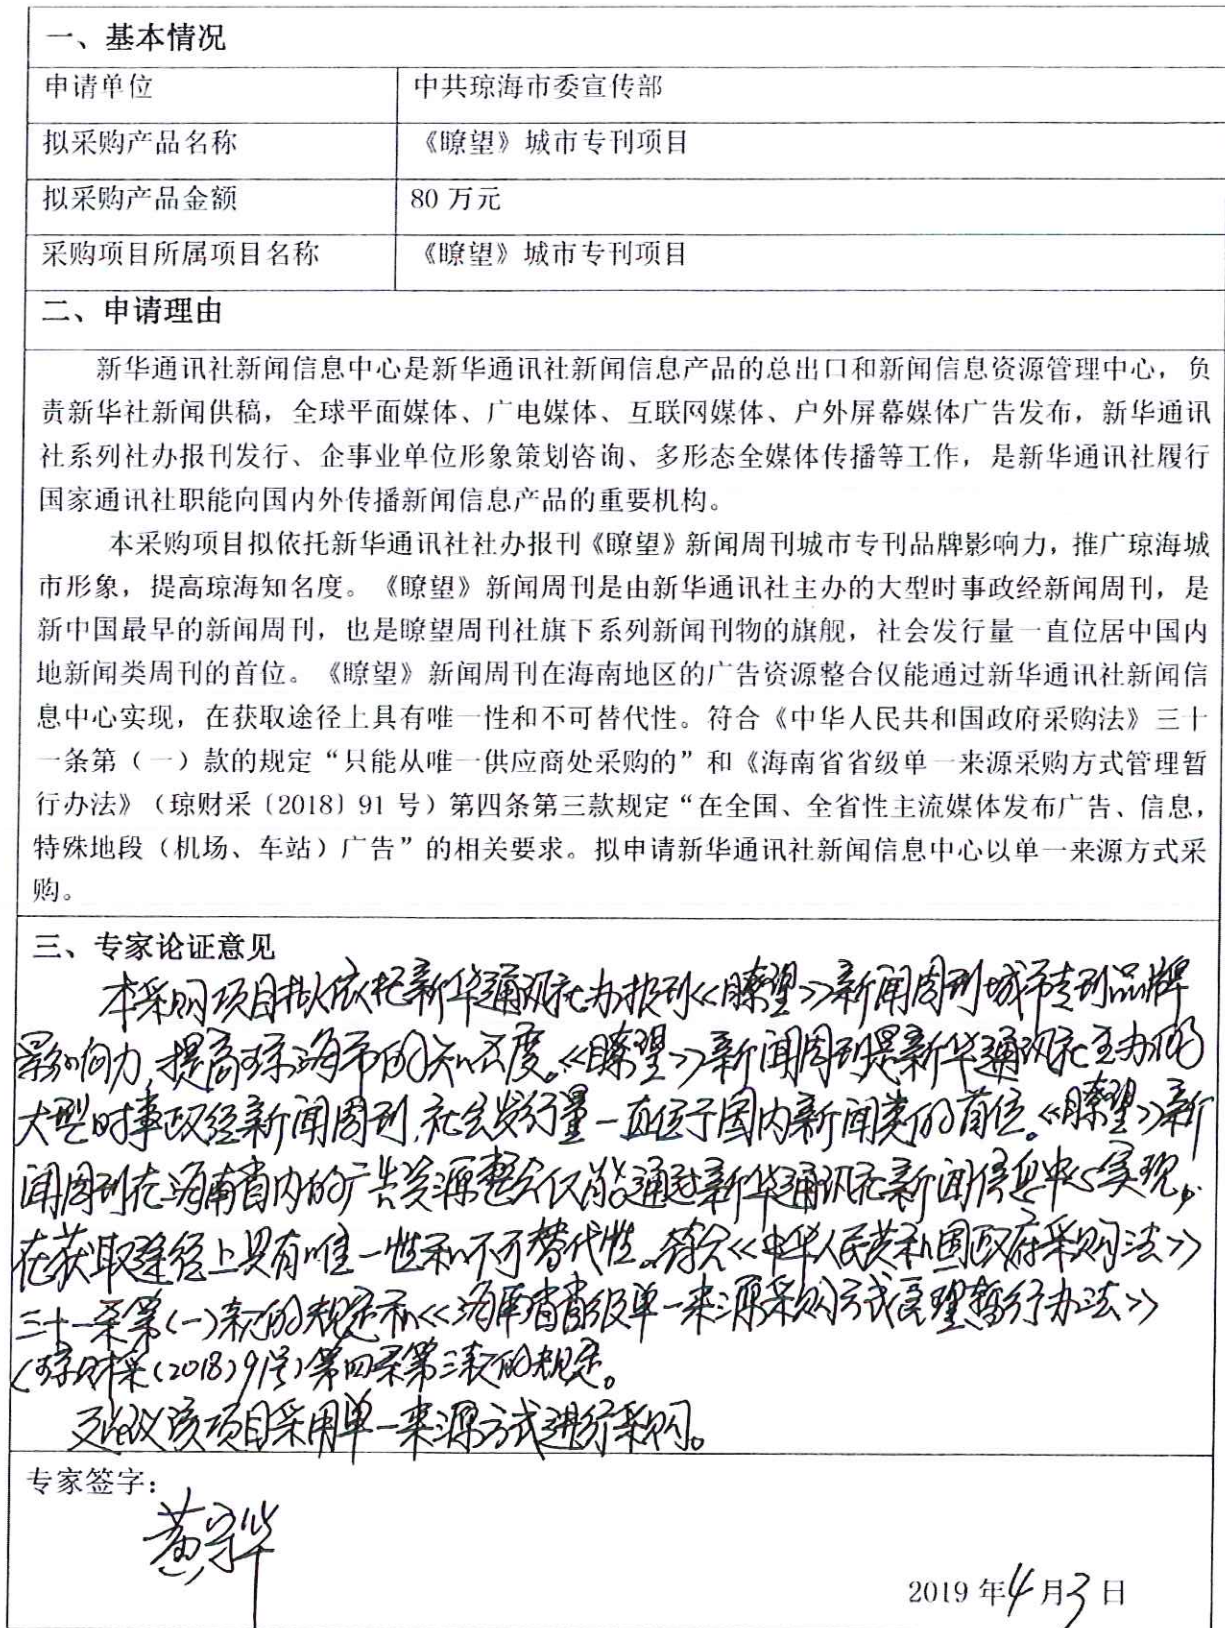 一、基本情况
申请单位 中共琼海市委宣传部
拟采购产品名称 《瞭望》城市专刊项目
拟采购产品金额 80 万元
采购项目所属项目名称 《瞭望》城市专刊项目
二、申请理由
新华通讯社新闻信息中心是新华通讯社新闻信息产品的总出口和新闻信息资源管理中心，负
责新华社新闻供稿，全球平面媒体、广电媒体、互联网媒体、户外屏幕媒体广告发布，新华通讯
社系列社办报刊发行、企事业单位形象策划咨询、多形态全媒体传播等工作，是新华通讯社履行
国家通讯社职能向国内外传播新闻信息产品的重要机构。
本采购项目拟依托新华通讯社社办报刊《瞭望》新闻周刊城市专刊品牌影响力，推广琼海城
市形象，提高琼海知名度。《瞭望》新闻周刊是由新华通讯社主办的大型时事政经新闻周刊，是
新中国最早的新闻周刊，也是瞭望周刊社旗下系列新闻刊物的旗舰，社会发行量一直位居中国内
地新闻类周刊的首位。《瞭望》新闻周刊在海南地区的广告资源整合仅能通过新华通讯社新闻信
息中心实现，在获取途径上具有唯一性和不可替代性。符合《中华人民共和国政府采购法》三十
一条第（一）款的规定“只能从唯一供应商处采购的”和《海南省省级单一来源采购方式管理暂
行办法》（琼财采〔2018〕91 号）第四条第三款规定“在全国、全省性主流媒体发布广告、信息，
特殊地段（机场、车站）广告”的相关要求。拟申请新华通讯社新闻信息中心以单一来源方式采
购。
三、专家论证意见
本采购项目拟依托新华通讯社办报刊《瞭望》新闻周刊城市专刊品牌
影响力，提高琼海市的知名度。《瞭望》新闻周刊是新华通讯社主办的
大型时事政经新闻周刊，社会发行量一直位于国内新闻类的首位。《瞭望》新
闻周刊在海南省内的广告资源整合仅能通过新华通讯社新闻信息中心实现。
在获取途径上具有唯一性和不可替代性。符合《中华人民共和国政府采购法》
三十一条第(一)款的规定和《海南省省级单一来源采购方式管理暂行办法》
(琼财采(2018)91号)第四条第三款的规定。
建议该项目采用单一来源方式进行采购。
专家签字：
2019 年4月3日